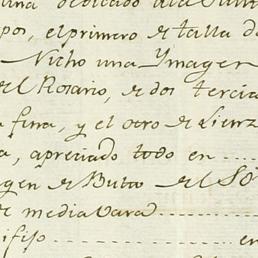 una dedicado a la
pos, el primero de talla de
Nicho una Ymagen
del Rosario, de dos tercia
fina, y el otro de Lienz
a, apreciado todo en
gen de Bulto del
de media vara
ifijo en